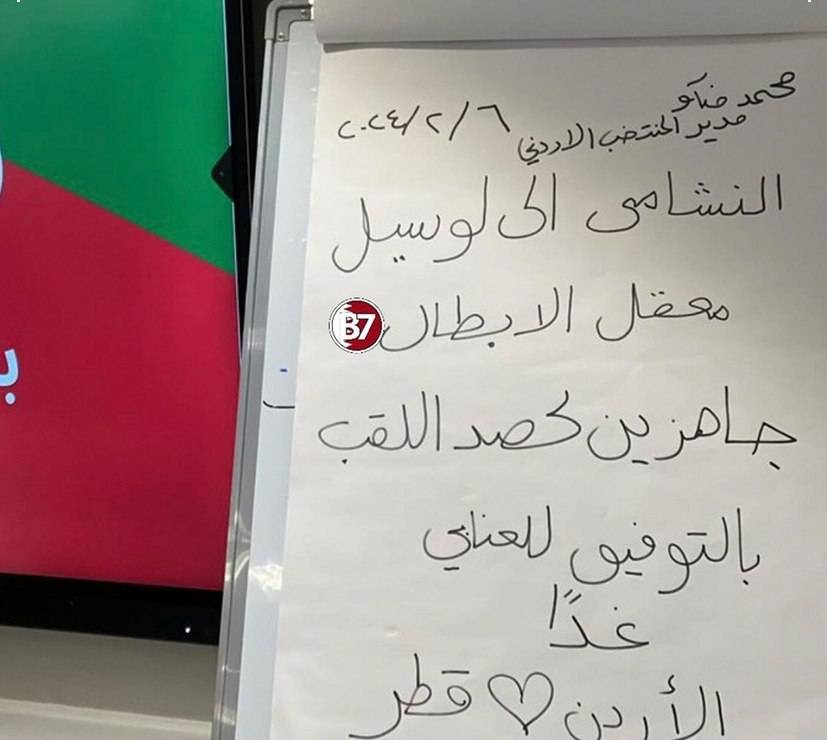 محمد ضناكو
مدير المنتخب الاردني
٢٠٢٤/٢/٦
النشامى الى لوسيل
معقل الابطال
B7
جاهزين لحصد اللقب
بالتوفيق للعنابي
غدًا
الأردن ♡ قطر